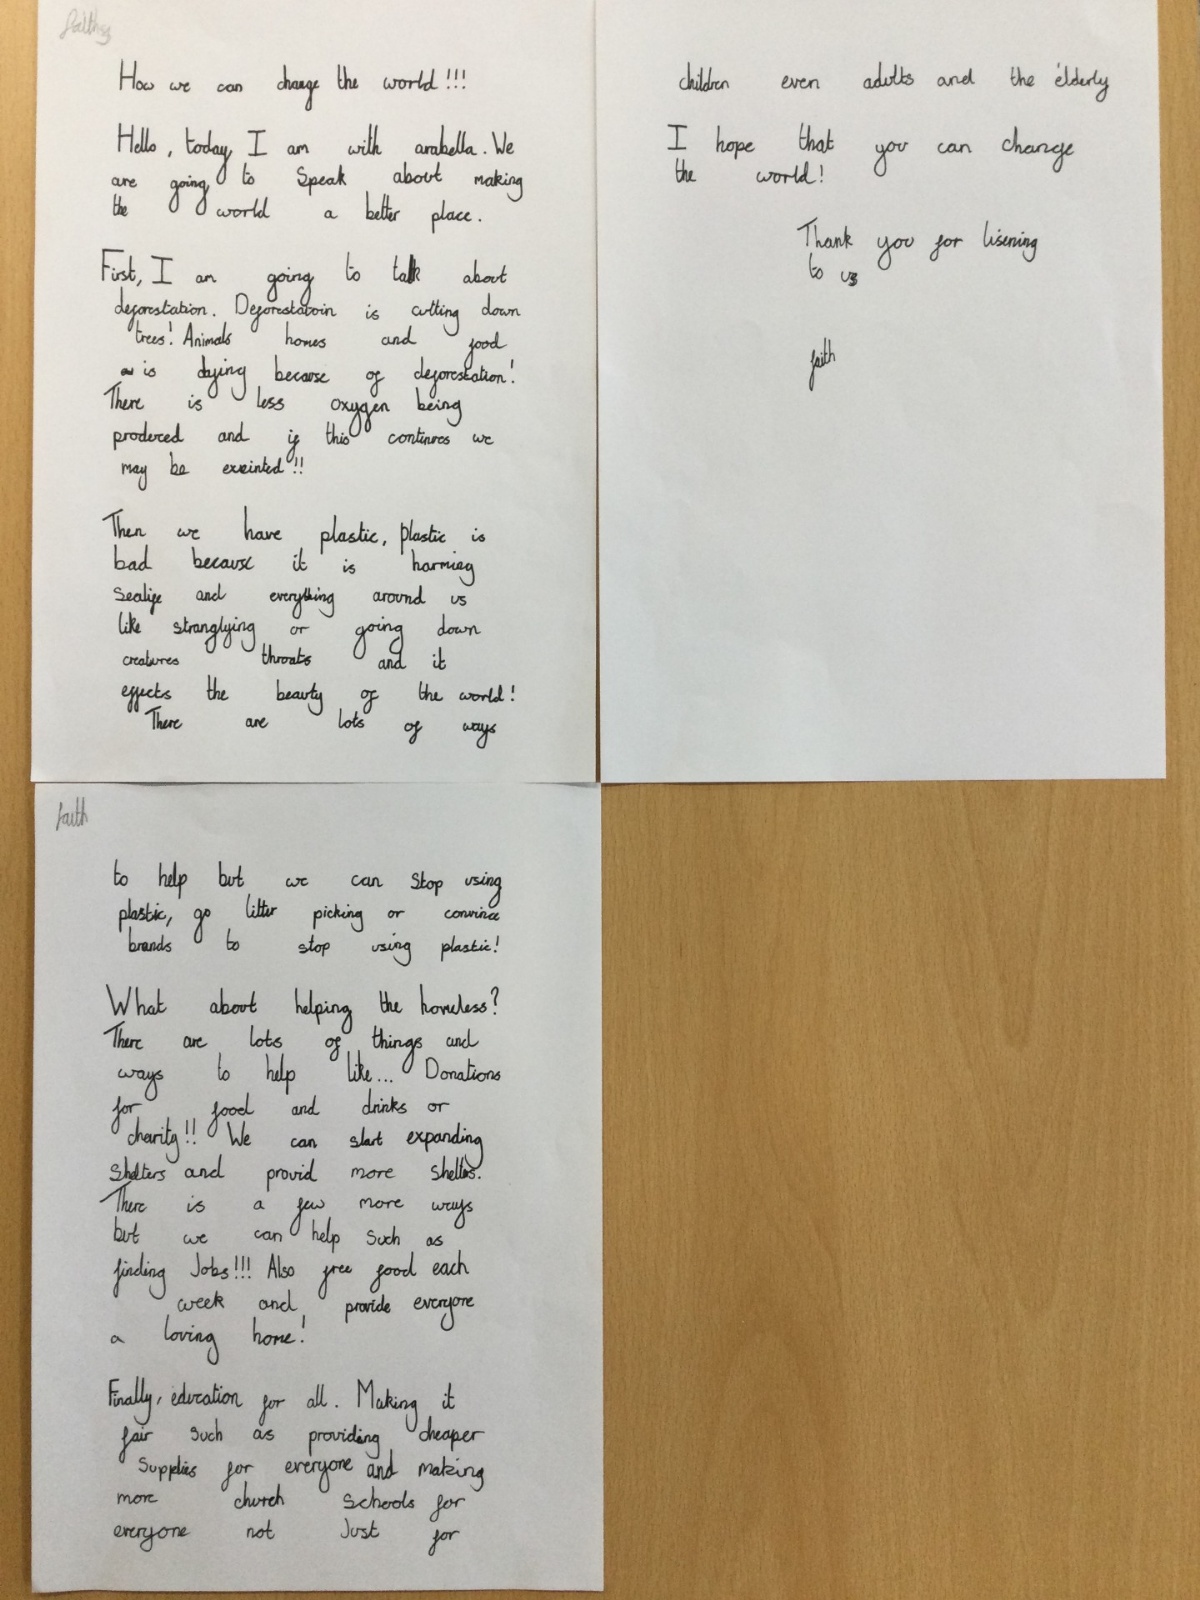 faith
How we can change the world!!!
Hello, today, I am with arabella. We
are going to Speak about making
the world a better place.
First, I am going to talk about
deforestation. Deforestatoin is cutting down
trees! Animals homes and food
is dying because of deforestation!
There is less oxygen being
produced and if this continues we
may be exxinted!!
Then we have plastic, plastic is
bad because it is harmieg
Sealife and everything around us
like stranglying or going down
creatures throats and it
effects the beauty of the world!
There are lots of ways
faith
to help but we can Stop using
plastic, go litter picking or convince
brands to stop using plastic!
What about helping the homeless?
There are lots of things and
ways to help like... Donations
for food and drinks or
charity!! We can start expanding
Shelters and provid more shelters.
There is a few more ways
but we can help Such as
finding Jobs!!! Also free food each
week and provide everyone
a loving home!
Finally, education for all. Making it
fair Such as providing cheaper
Supplies for everyone and making
more church Schools for
everyone not Just for
children even adults and the elderly
I hope that you can change
the world!
Thank you for lisening
to us
faith